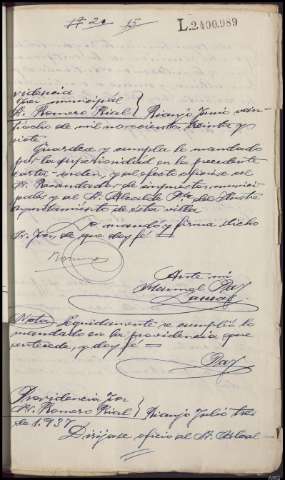 L.2400.989
Providencia
Juez municipal
Sr. Romero Rial } Rianjo Junio vein-
tiocho de mil novecientos treinta y
siete
Guardese y cumplase lo mandado
por la superioridad en la precedente
carta-orden, y al efecto oficiese al
Sr. Recaudador de impuestos munici-
pales y al Sr. Alcalde Pte. del Ilustre
ayuntamiento de esta villa
Lo mandó y firma dicho
Sr. Juez de que doy fe =
Romero
Ante mi
Nota: Seguidamente se cumplió lo
mandado en la providencia que
antecede y doy fe =
Providencia Juez
Sr. Romero Rial } Rianjo Julio tres
de 1.937
Dirijase oficio al Sr. Alcal-